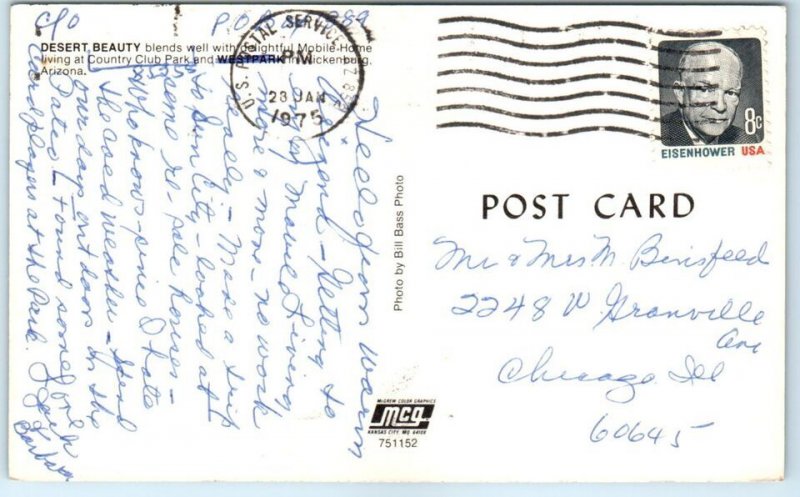 c/o P.O. Box 989
DESERT BEAUTY blends well with delightful Mobile-Home
living at Country Club Park and WESTPARK in Wickenburg,
Arizona.
U.S. POSTAL SERVICE
PM
28 JAN
1975
Hello from warm
Getting to
Mobile Living
more & more - no work
really - Made a trip
to Sun City - looked at
some re-sale homes -
who knows, since I hate
the cold weather - Spend
our days outdoors on the
Patio - found some
Cardplayers at the Park
Love
Jack
Barbara
Photo by Bill Bass Photo
McGREW COLOR GRAPHICS
mcg
KANSAS CITY, MO. 64108
751152
8c
EISENHOWER USA
POST CARD
Mr & Mrs M. Binsfeld
2248 W. Granville
Ave
Chicago Ill
60645